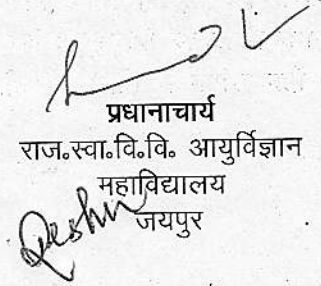 प्रधानाचार्य
राज॰स्वा॰वि॰वि॰ आयुर्विज्ञान
महाविद्यालय
जयपुर